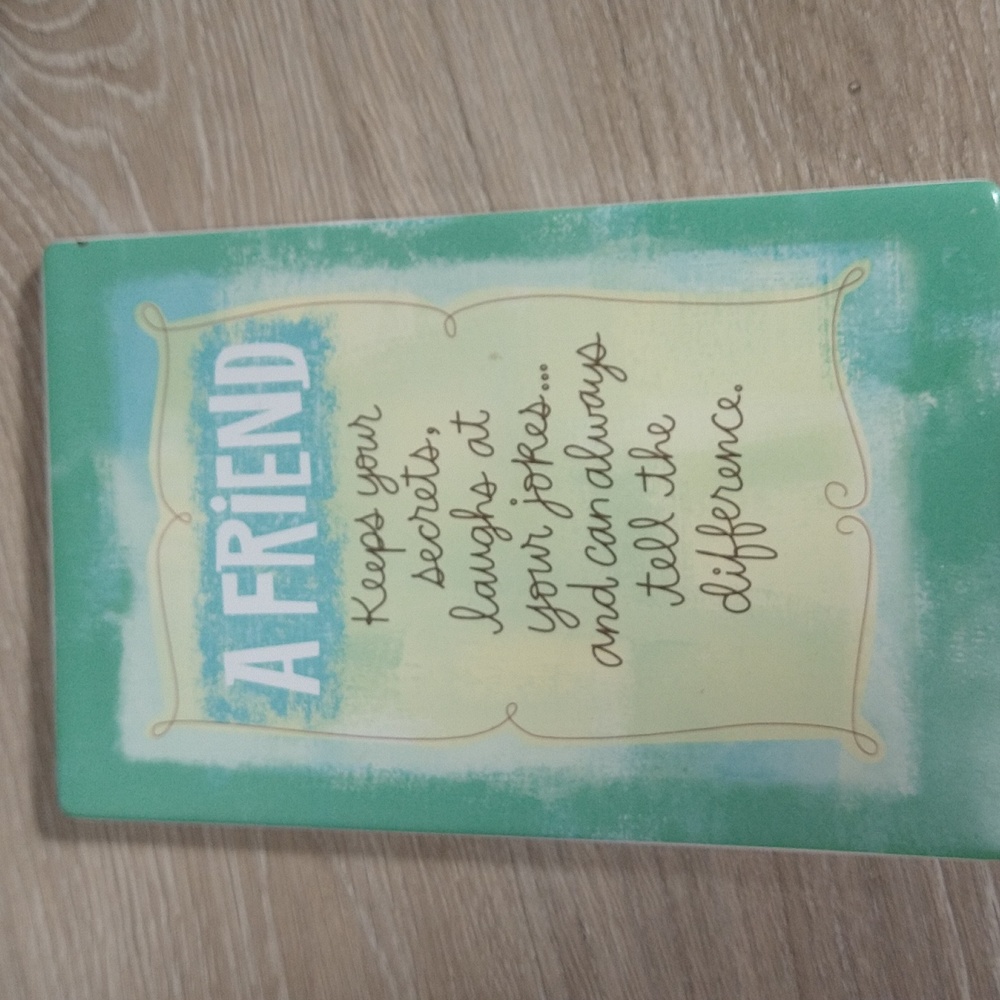 A FRiEND
Keeps your
secrets,
laughs at
your jokes...
and can always
tell the
difference.